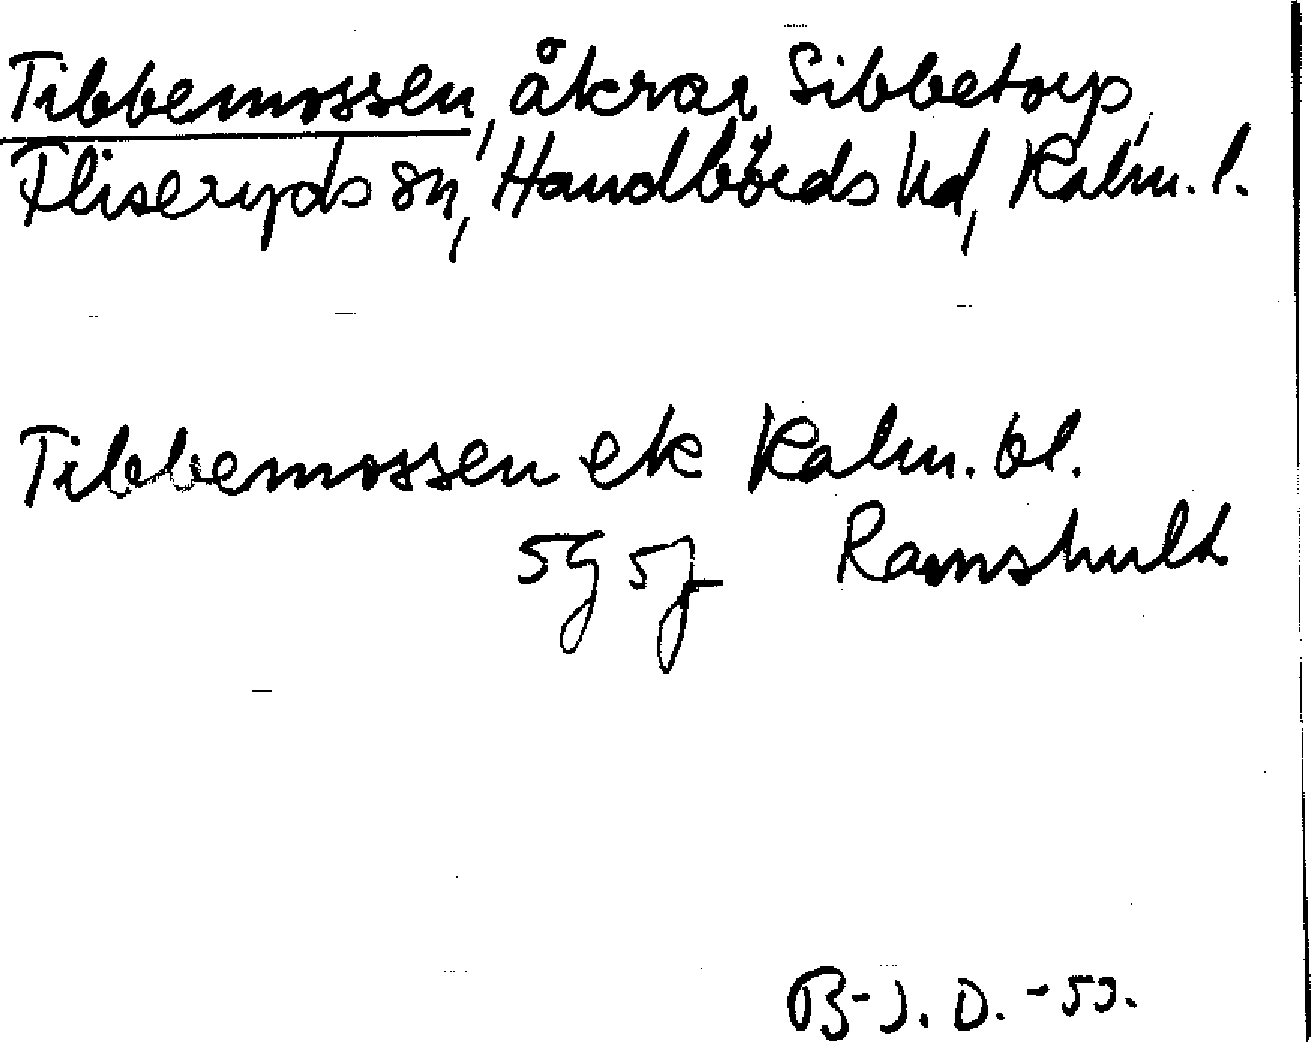 Tibbemossen, åkrar, Sibbetorp,
Fliseryds sn, Handbörds hd, Kalm. l.
Tibbemossen ek Kalm. bl.
5g5j Ramshult
B-J. D. -53.